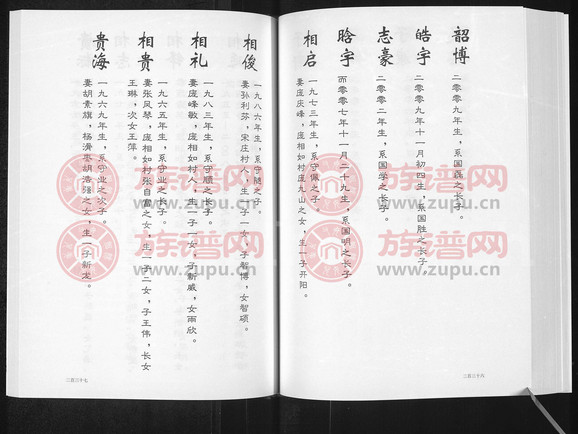 韶博
二零零九年生，系国磊之长子。
皓宇
二零零九年十一月初四生，系国胜之长子。
志豪
二零零二年生，系国学之长子。
晗宇
二零零七年十一月二十九生，系国明之长子。
相启
一九七三年生，系守佩之子。
妻庞庆峰，庞相如村庞九山之女，生一子开阳。
二百三十六
相俊
一九八六年生，系守随之子。
妻孙利芬，宋庄村人，生一子一女，子智博，女智硕。
相礼
一九八三年生，系守顺之长子。
妻庞峰敏，庞相如村人，生一子一女，子新威，女雨欣。
相贵
一九六五年生，系守业之长子。
妻张凤琴，庞相如村张自富之女，生一子二女，子王伟，长女
王琳，次女王萍。
贵海
一九六九年生，系守业之次子。
妻胡素旗，杨湾枣胡浩强之女，生一子新龙。
二百三十七
族谱网
www.zupu.cn
族谱网
www.zupu.cn
族谱网
www.zupu.cn
族谱网
www.zupu.cn